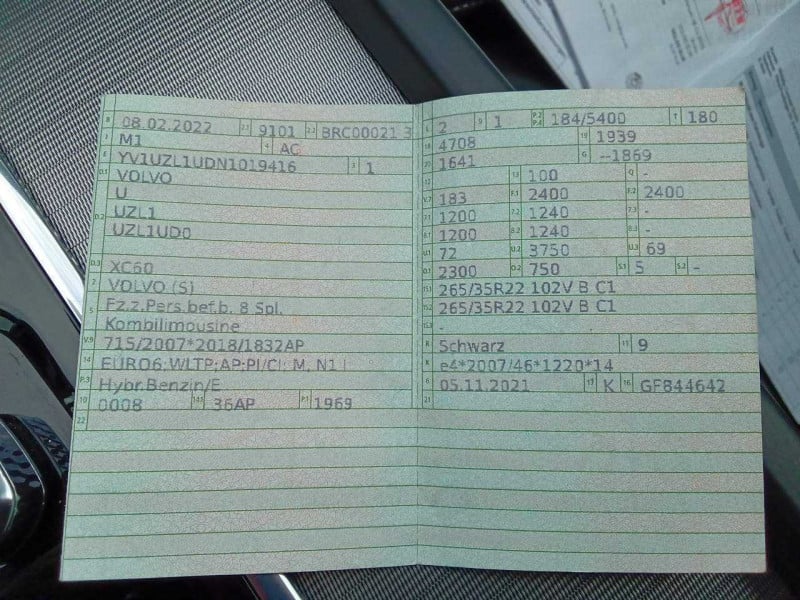 B 08.02.2022 2.1 9101 2.2 BRC00021 3
J M1 4 AC
E YV1UZL1UDN1019416 3 1
D.1 VOLVO
U
D.2 UZL1
UZL1UD0
D.3 XC60
2 VOLVO (S)
5 Fz.z.Pers.bef.b. 8 Spl.
Kombilimousine
V.9 715/2007*2018/1832AP
14 EURO6;WLTP;AP;PI/CI; M, N1 I
P.3 Hybr.Benzin/E
10 0008 14.1 36AP P.1 1969
22
L 2 9 1 P.2 P.4 184/5400 T 180
18 4708 19 1939
20 1641 G --1869
12 - 13 100 Q -
V.7 183 F.1 2400 F.2 2400
7.1 1200 7.2 1240 7.3 -
8.1 1200 8.2 1240 8.3 -
U.1 72 U.2 3750 U.3 69
O.1 2300 O.2 750 S.1 5 S.2 -
15.1 265/35R22 102V B C1
15.2 265/35R22 102V B C1
15.3 -
R Schwarz 11 9
K e4*2007/46*1220*14
6 05.11.2021 17 K 16 GF844642
21